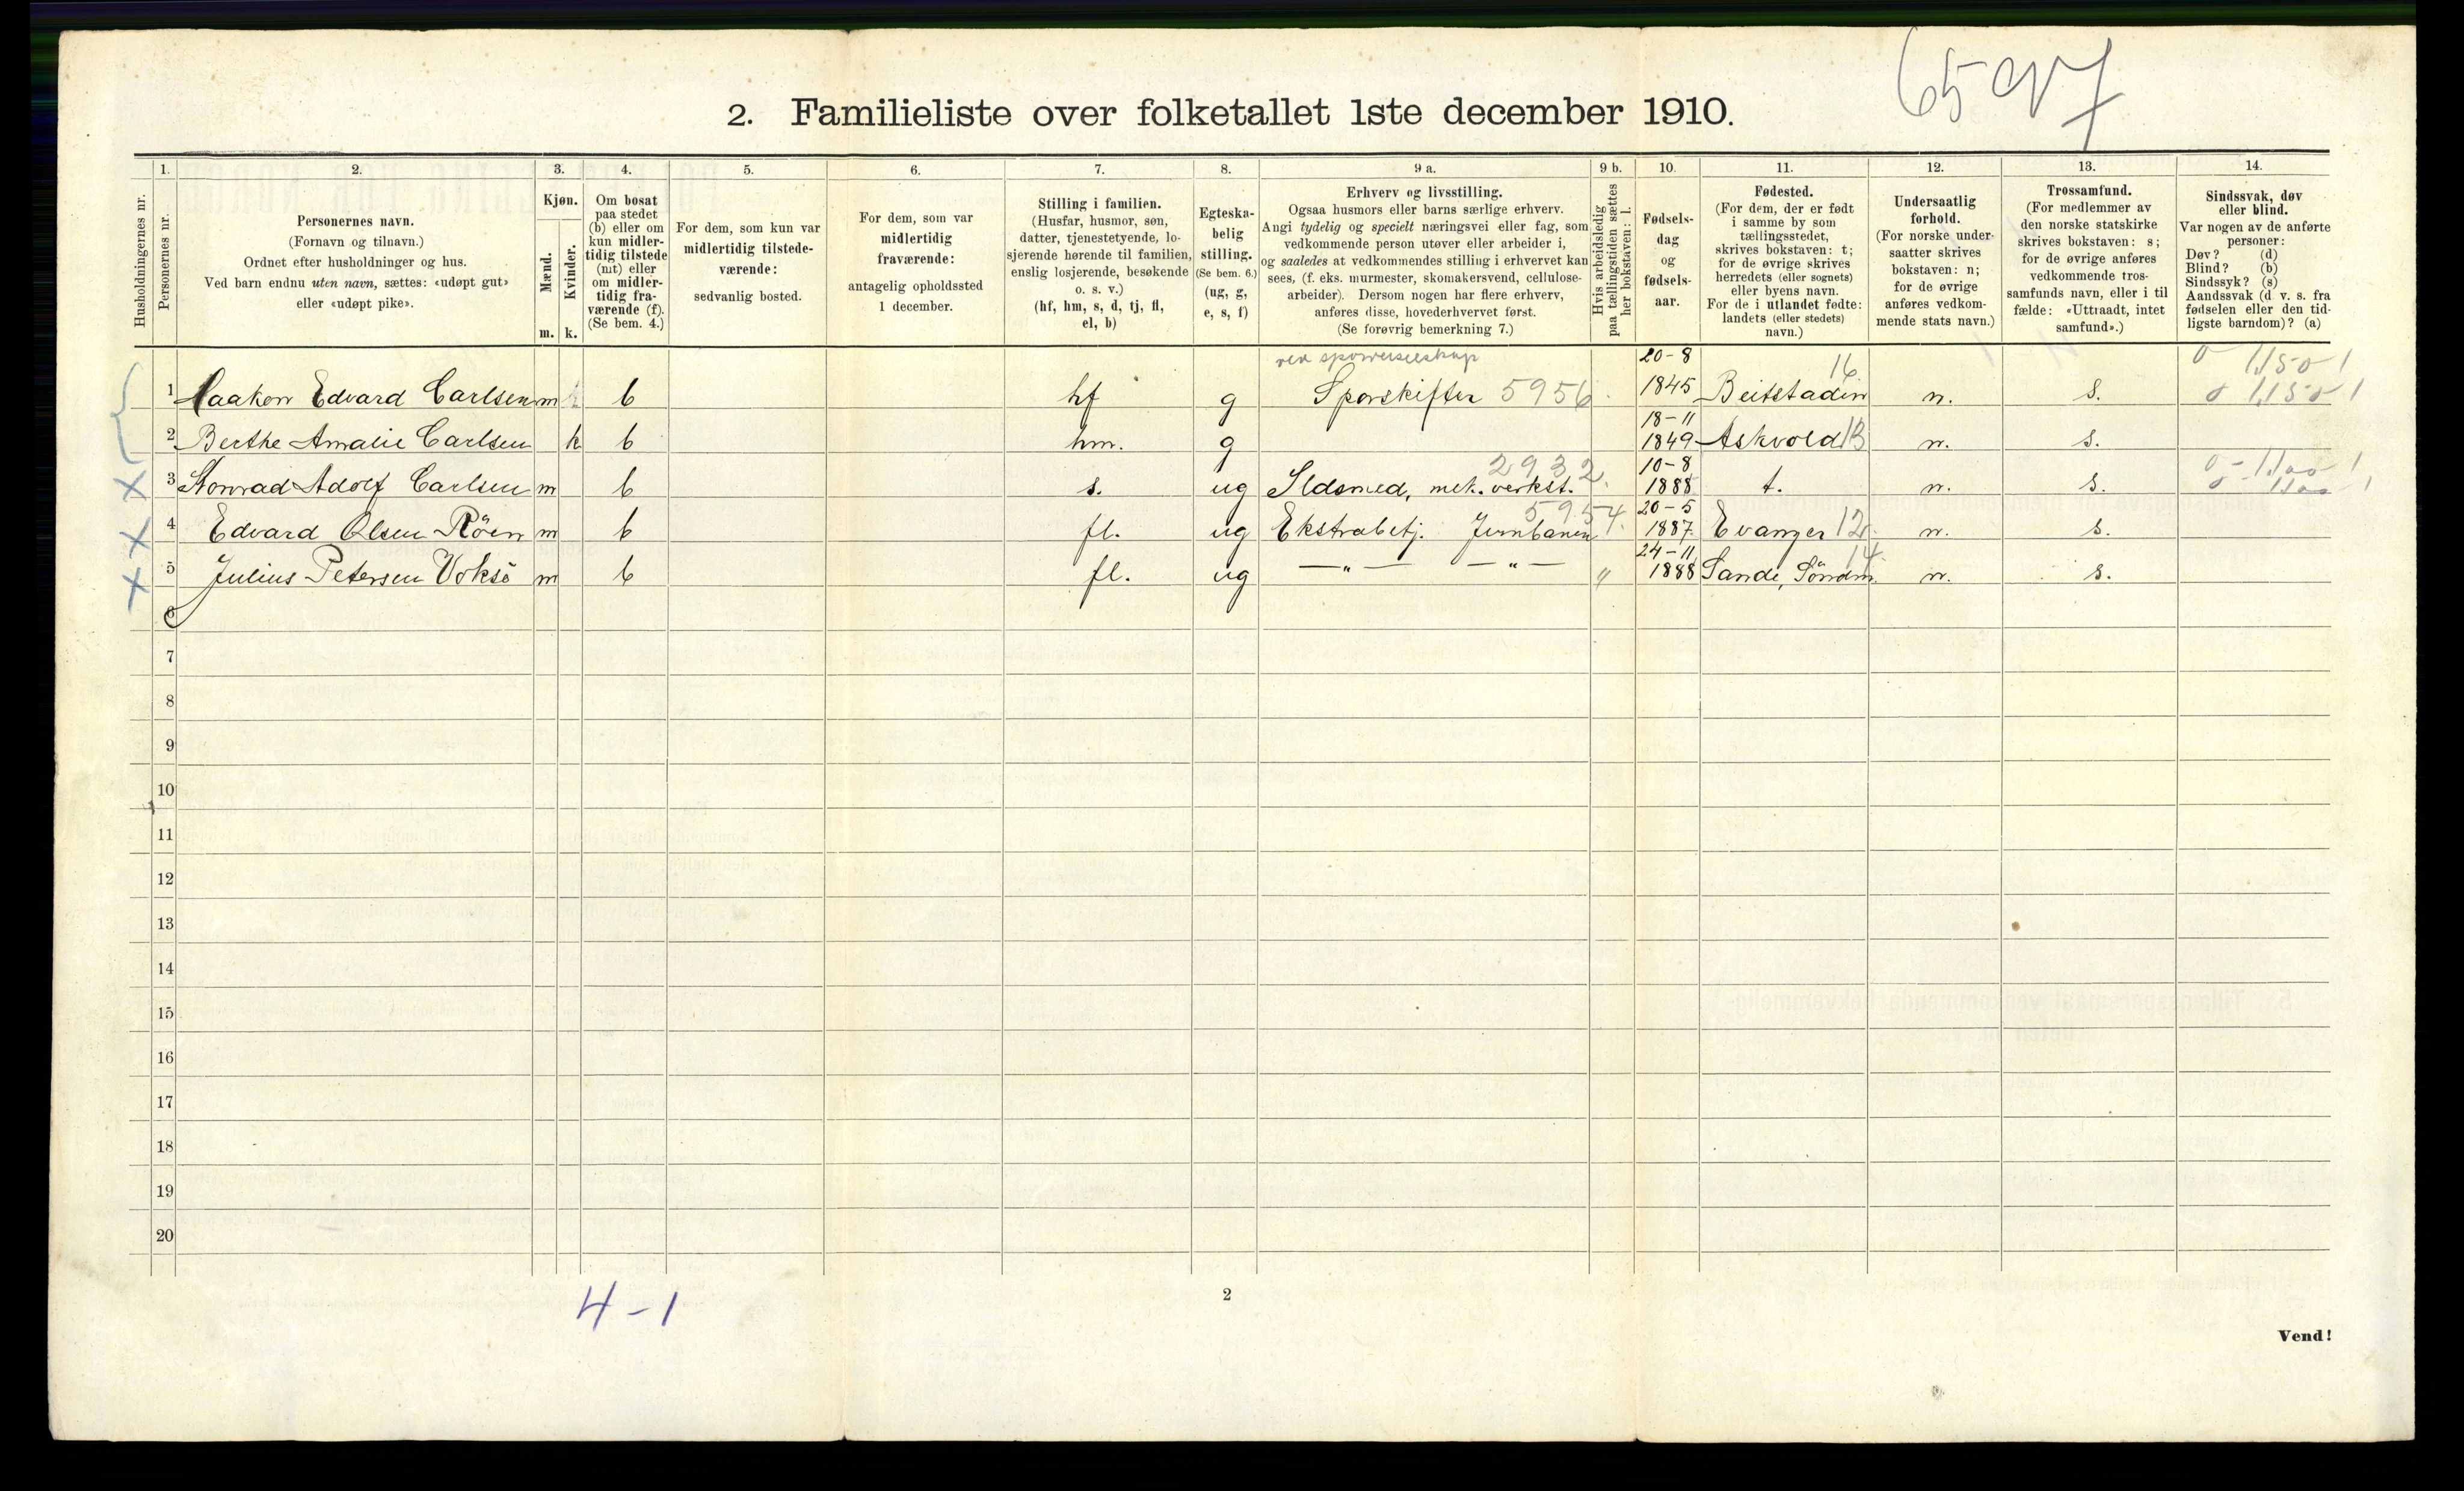 6597
2. Familieliste over folketallet 1ste december 1910.
1. 2. 3. 4. 5. 6. 7. 8. 9 a. 9 b. 10. 11. 12. 13. 14.
Husholdningernes nr.
Personernes nr.
Personernes navn.
(Fornavn og tilnavn.)
Ordnet efter husholdninger og hus.
Ved barn endnu uten navn, sættes: «udøpt gut»
eller «udøpt pike».
Kjøn.
Mænd.
m.
Kvinder.
k.
Om bosat
paa stedet
(b) eller om
kun midler-
tidig tilstede
(mt) eller
om midler-
tidig fra-
værende (f).
(Se bem. 4.)
For dem, som kun var
midlertidig tilstede-
værende:
sedvanlig bosted.
For dem, som var
midlertidig
fraværende:
antagelig opholdssted
1 december.
Stilling i familien.
(Husfar, husmor, søn,
datter, tjenestetyende, lo-
sjerende hørende til familien,
enslig losjerende, besøkende
o. s. v.)
(hf, hm, s, d, tj, fl,
el, b)
Egteska-
belig
stilling.
(Se bem. 6.)
(ug, g,
e, s, f)
Erhverv og livsstilling.
Ogsaa husmors eller barns særlige erhverv.
Angi tydelig og specielt næringsvei eller fag, som
vedkommende person utøver eller arbeider i,
og saaledes at vedkommendes stilling i erhvervet kan
sees, (f. eks. murmester, skomakersvend, cellulose-
arbeider). Dersom nogen har flere erhverv,
anføres disse, hovederhvervet først.
(Se forøvrig bemerkning 7.)
Hvis arbeidsledig
paa tællingstiden sættes
her bokstaven: l.
Fødsels-
dag
og
fødsels-
aar.
Fødested.
(For dem, der er født
i samme by som
tællingsstedet,
skrives bokstaven: t;
for de øvrige skrives
herredets (eller sognets)
eller byens navn.
For de i utlandet fødte:
landets (eller stedets)
navn.)
Undersaatlig
forhold.
(For norske under-
saatter skrives
bokstaven: n;
for de øvrige
anføres vedkom-
mende stats navn.)
Trossamfund.
(For medlemmer av
den norske statskirke
skrives bokstaven: s;
for de øvrige anføres
vedkommende tros-
samfunds navn, eller i til
fælde: «Uttraadt, intet
samfund».)
Sindssvak, døv
eller blind.
Var nogen av de anførte
personer:
Døv? (d)
Blind? (b)
Sindssyk? (s)
Aandssvak (d. v. s. fra
fødselen eller den tid-
ligste barndom)? (a)
1 Haakon Edvard Carlsen m b hf g Sporskifter 5956 20-8 1845 Beitstaden 16 n. s.
2 Berthe Amalie Carlsen k b hm. g 18-11 1849 Askvold 13 n. s.
3 Konrad Adolf Carlsen m b s. ug Ildsmed, mek. verkst. 2932. 10-8 1888 t. n. s.
4 Edvard Olsen Röen m b fl. ug Ekstrabetj. Jernbanen 5954. 20-5 1887 Evanger 12 n. s.
5 Julius Petersen Voksö m b fl. ug — „ — — „ — „ 24-11 1888 Sande, Söndm. 14 n. s.
6
7
8
9
10
11
12
13
14
15
16
17
18
19
20
4-1
2
Vend!